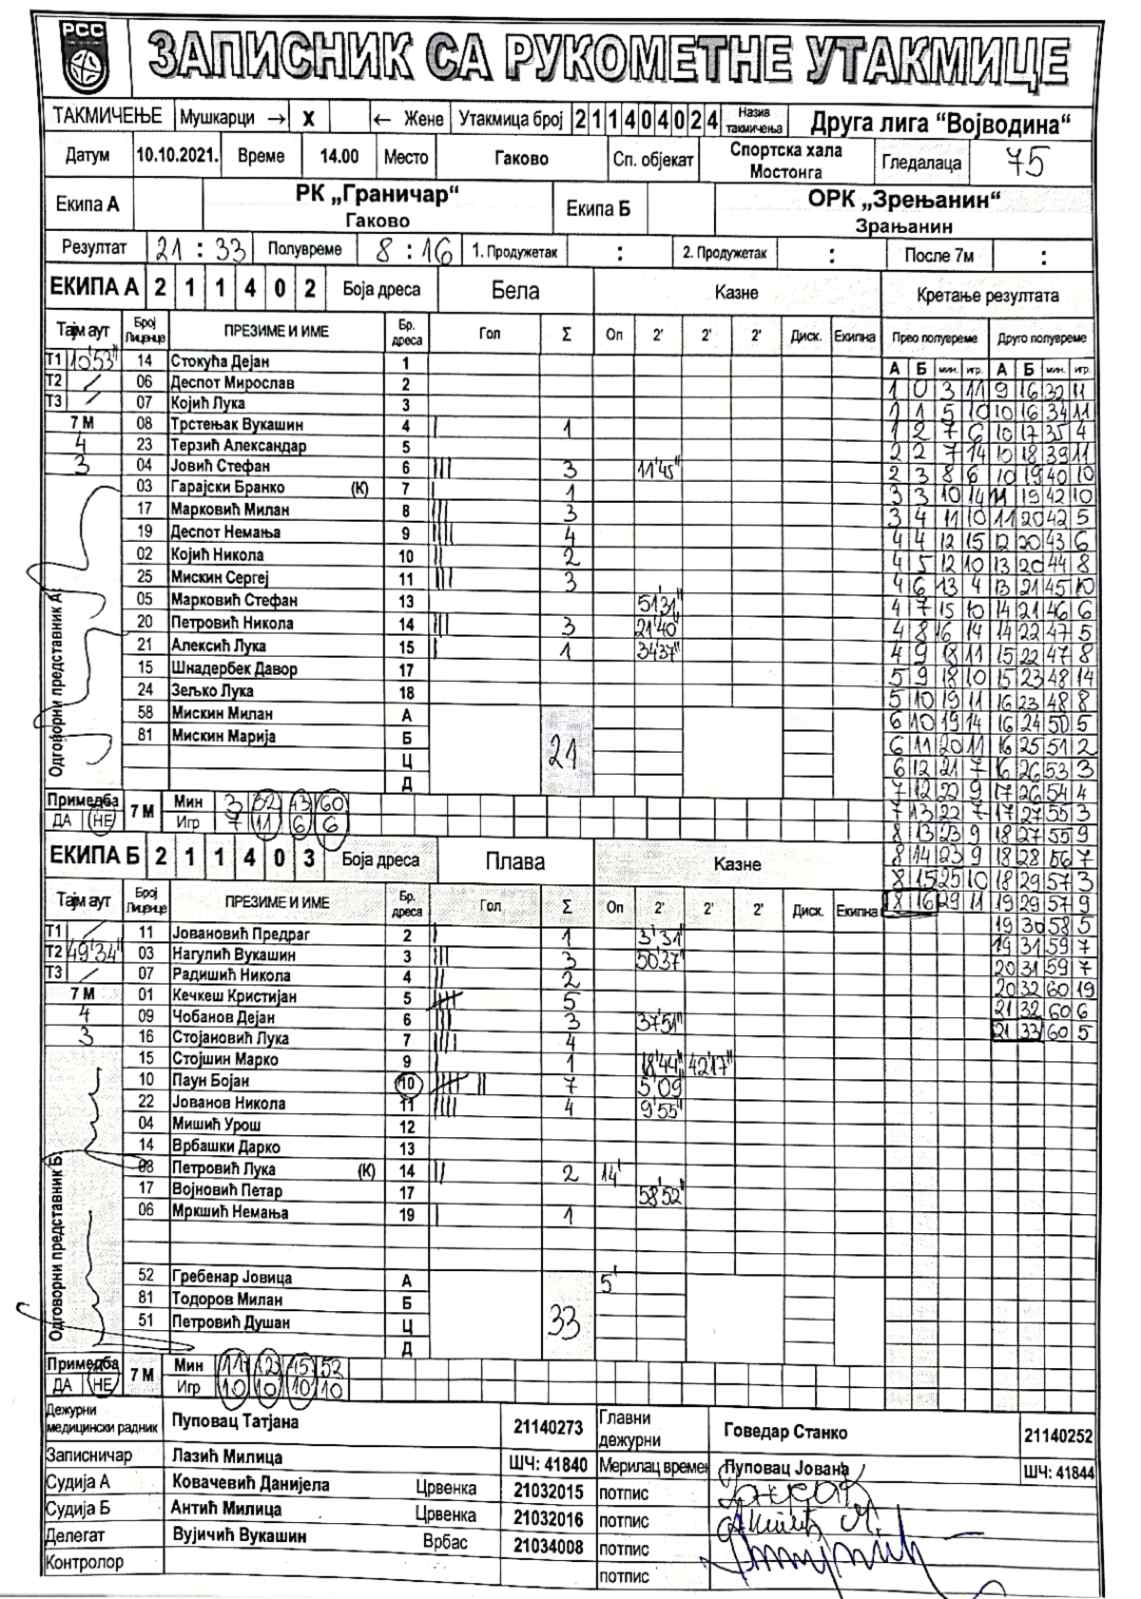 РСС
ЗАПИСНИК СА РУКОМЕТНЕ УТАКМИЦЕ
ТАКМИЧЕЊЕ Мушкарци → X ← Жене Утакмица број 211404024 Назив такмичења Друга лига "Војводина"
Датум 10.10.2021. Време 14.00 Место Гаково Сп. објекат Спортска хала Мостонга Гледалаца 75
Екипа А РК „Граничар“ Гаково Екипа Б ОРК „Зрењанин“ Зрањанин
Резултат 21 : 33 Полувреме 8 : 16 1. Продужетак : 2. Продужетак : После 7м :
ЕКИПА А 2 1 1 4 0 2 Боја дреса Бела Казне Кретање резултата
Тајм аут Број Лиценце ПРЕЗИМЕ И ИМЕ Бр. дреса Гол Σ Оп 2' 2' 2' Диск. Екипна Прво полувреме Друго полувреме
А Б мин. игр. А Б мин. игр.
Т1 10'53" 14 Стокућа Дејан 1
Т2 / 06 Деспот Мирослав 2
Т3 / 07 Којић Лука 3
7 М 08 Трстењак Вукашин 4 | 1
4 23 Терзић Александар 5
3 04 Јовић Стефан 6 ||| 3 11'45"
03 Гарајски Бранко (К) 7 | 1
17 Марковић Милан 8 ||| 3
19 Деспот Немања 9 |||| 4
02 Којић Никола 10 || 2
25 Мискин Сергеј 11 ||| 3
05 Марковић Стефан 13 51'31"
20 Петровић Никола 14 ||| 3 21'40"
21 Алексић Лука 15 | 1 34'37"
15 Шнадербек Давор 17
24 Зељко Лука 18
58 Мискин Милан А
81 Мискин Марија Б
Ц
Д
21
Одговорни представник А:
1 0 3 11 9 16 32 11
1 1 5 10 10 16 34 11
1 2 7 6 10 17 35 4
2 2 7 14 10 18 39 11
2 3 8 6 10 19 40 10
3 3 10 14 11 19 42 10
3 4 11 10 11 20 42 5
4 4 12 15 12 20 43 6
4 5 12 10 13 20 44 8
4 6 13 4 13 21 45 10
4 7 15 10 14 21 46 6
4 8 16 14 14 22 47 5
4 9 18 11 15 22 47 8
5 9 18 10 15 23 48 14
5 10 19 11 16 23 48 8
6 10 19 14 16 24 50 5
6 11 20 11 16 25 51 2
6 12 21 7 16 26 53 3
7 12 22 9 17 26 54 4
7 13 22 7 17 27 55 3
8 13 23 9 18 27 55 9
8 14 23 9 18 28 56 7
8 15 25 10 18 29 57 3
8 16 29 11 19 29 57 9
19 30 58 5
19 31 59 7
20 31 59 7
20 32 60 19
21 32 60 6
21 33 60 5
Примедба ДА НЕ 7 М Мин 3 32 43 60
Игр 7 11 6 6
ЕКИПА Б 2 1 1 4 0 3 Боја дреса Плава Казне
Тајм аут Број Лиценце ПРЕЗИМЕ И ИМЕ Бр. дреса Гол Σ Оп 2' 2' 2' Диск. Екипна
Т1 / 11 Јовановић Предраг 2 | 1 3'31"
Т2 49'34" 03 Нагулић Вукашин 3 ||| 3 50'37"
Т3 / 07 Радишић Никола 4 || 2
7 М 01 Кечкеш Кристијан 5 5
4 09 Чобанов Дејан 6 ||| 3 37'51"
3 16 Стојановић Лука 7 |||| 4
15 Стојшин Марко 9 | 1 18'44" 42'17"
10 Паун Бојан 10 7 5'09"
22 Јованов Никола 11 |||| 4 9'55"
04 Мишић Урош 12
14 Врбашки Дарко 13
08 Петровић Лука (К) 14 || 2 14'
17 Војновић Петар 17 58'52"
06 Мркшић Немања 19 | 1
52 Гребенар Јовица А 5'
81 Тодоров Милан Б
51 Петровић Душан Ц
Д
33
Одговорни представник Б:
Примедба ДА НЕ 7 М Мин 11 12 15 52
Игр 10 10 10 10
Дежурни медицински радник Пуповац Татјана 21140273 Главни дежурни Говедар Станко 21140252
Записничар Лазић Милица ШЧ: 41840 Мерилац времен Пуповац Јована ШЧ: 41844
Судија А Ковачевић Данијела Црвенка 21032015 потпис
Судија Б Антић Милица Црвенка 21032016 потпис
Делегат Вујичић Вукашин Врбас 21034008 потпис
Контролор потпис